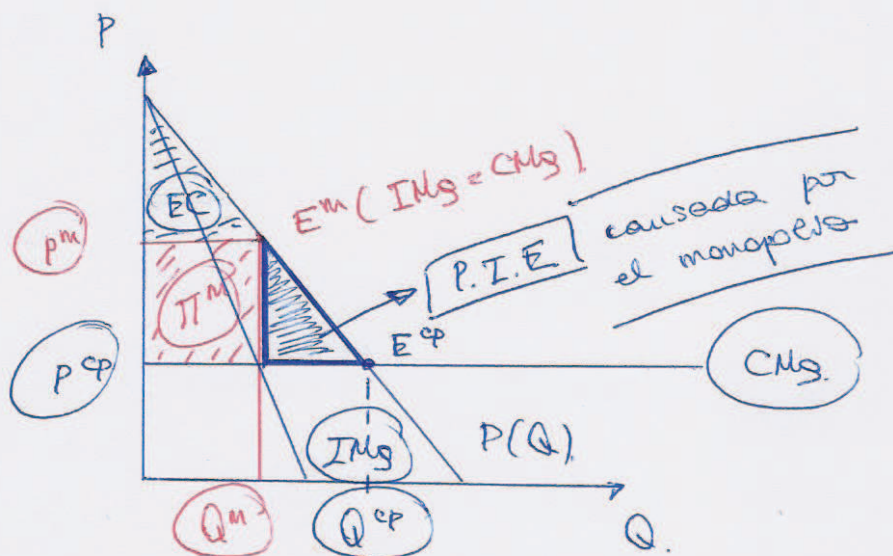 P
EC
E^m (IMg = CMg)
P.I.E causada por
el monopolio
p^m
Π^m
E^cp
p^cp
CMg.
IMg
P(Q).
Q^m
Q^cp
Q.